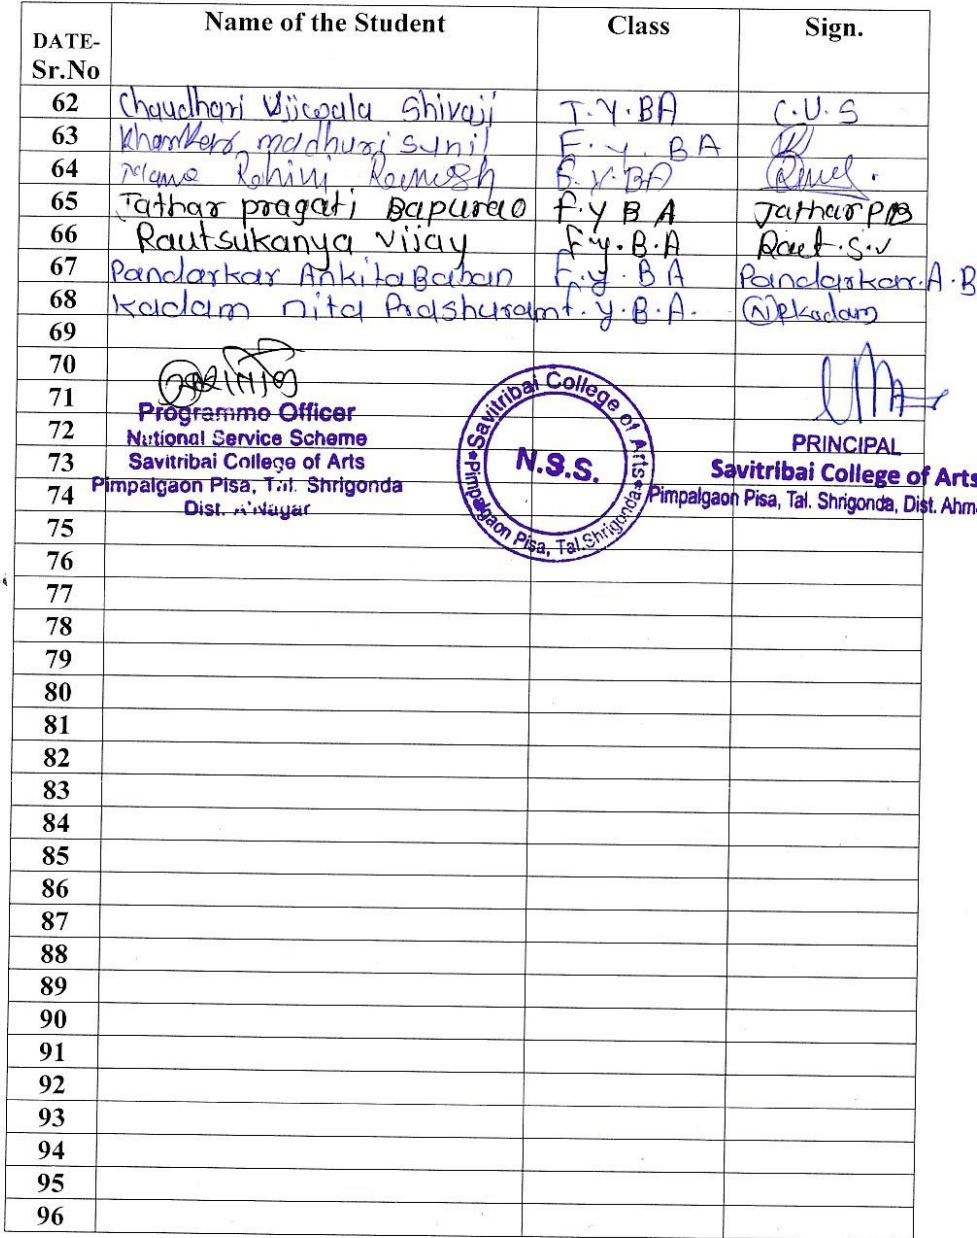 DATE-
Sr.No Name of the Student Class Sign.
62 Chaudhari Ujjwala Shivaji T.Y.BA C.U.S
63 madhuri sunil F.Y.BA
64 Mane Rohini Ramesh F.Y.BA
65 Jathar pragati Bapurao F.Y B A Jathar PB
66 Rautsukanya Vijay F.y.B.A Raut.S.V
67 Pandarkar Ankita Baban F.y.BA Pandarkar.A.B
68 kadam nita Prashuram f.y.B.A. NPkadam
69
70
71
72
73
74
75
76
77
78
79
80
81
82
83
84
85
86
87
88
89
90
91
92
93
94
95
96
Programme Officer
National Service Scheme
Savitribai College of Arts
Pimpalgaon Pisa, Tal. Shrigonda
Dist. A'Nagar
Savitribai College of Arts
N.S.S.
Pimpalgaon Pisa, Tal.Shrigonda
PRINCIPAL
Savitribai College of Arts
Pimpalgaon Pisa, Tal. Shrigonda, Dist. Ahm